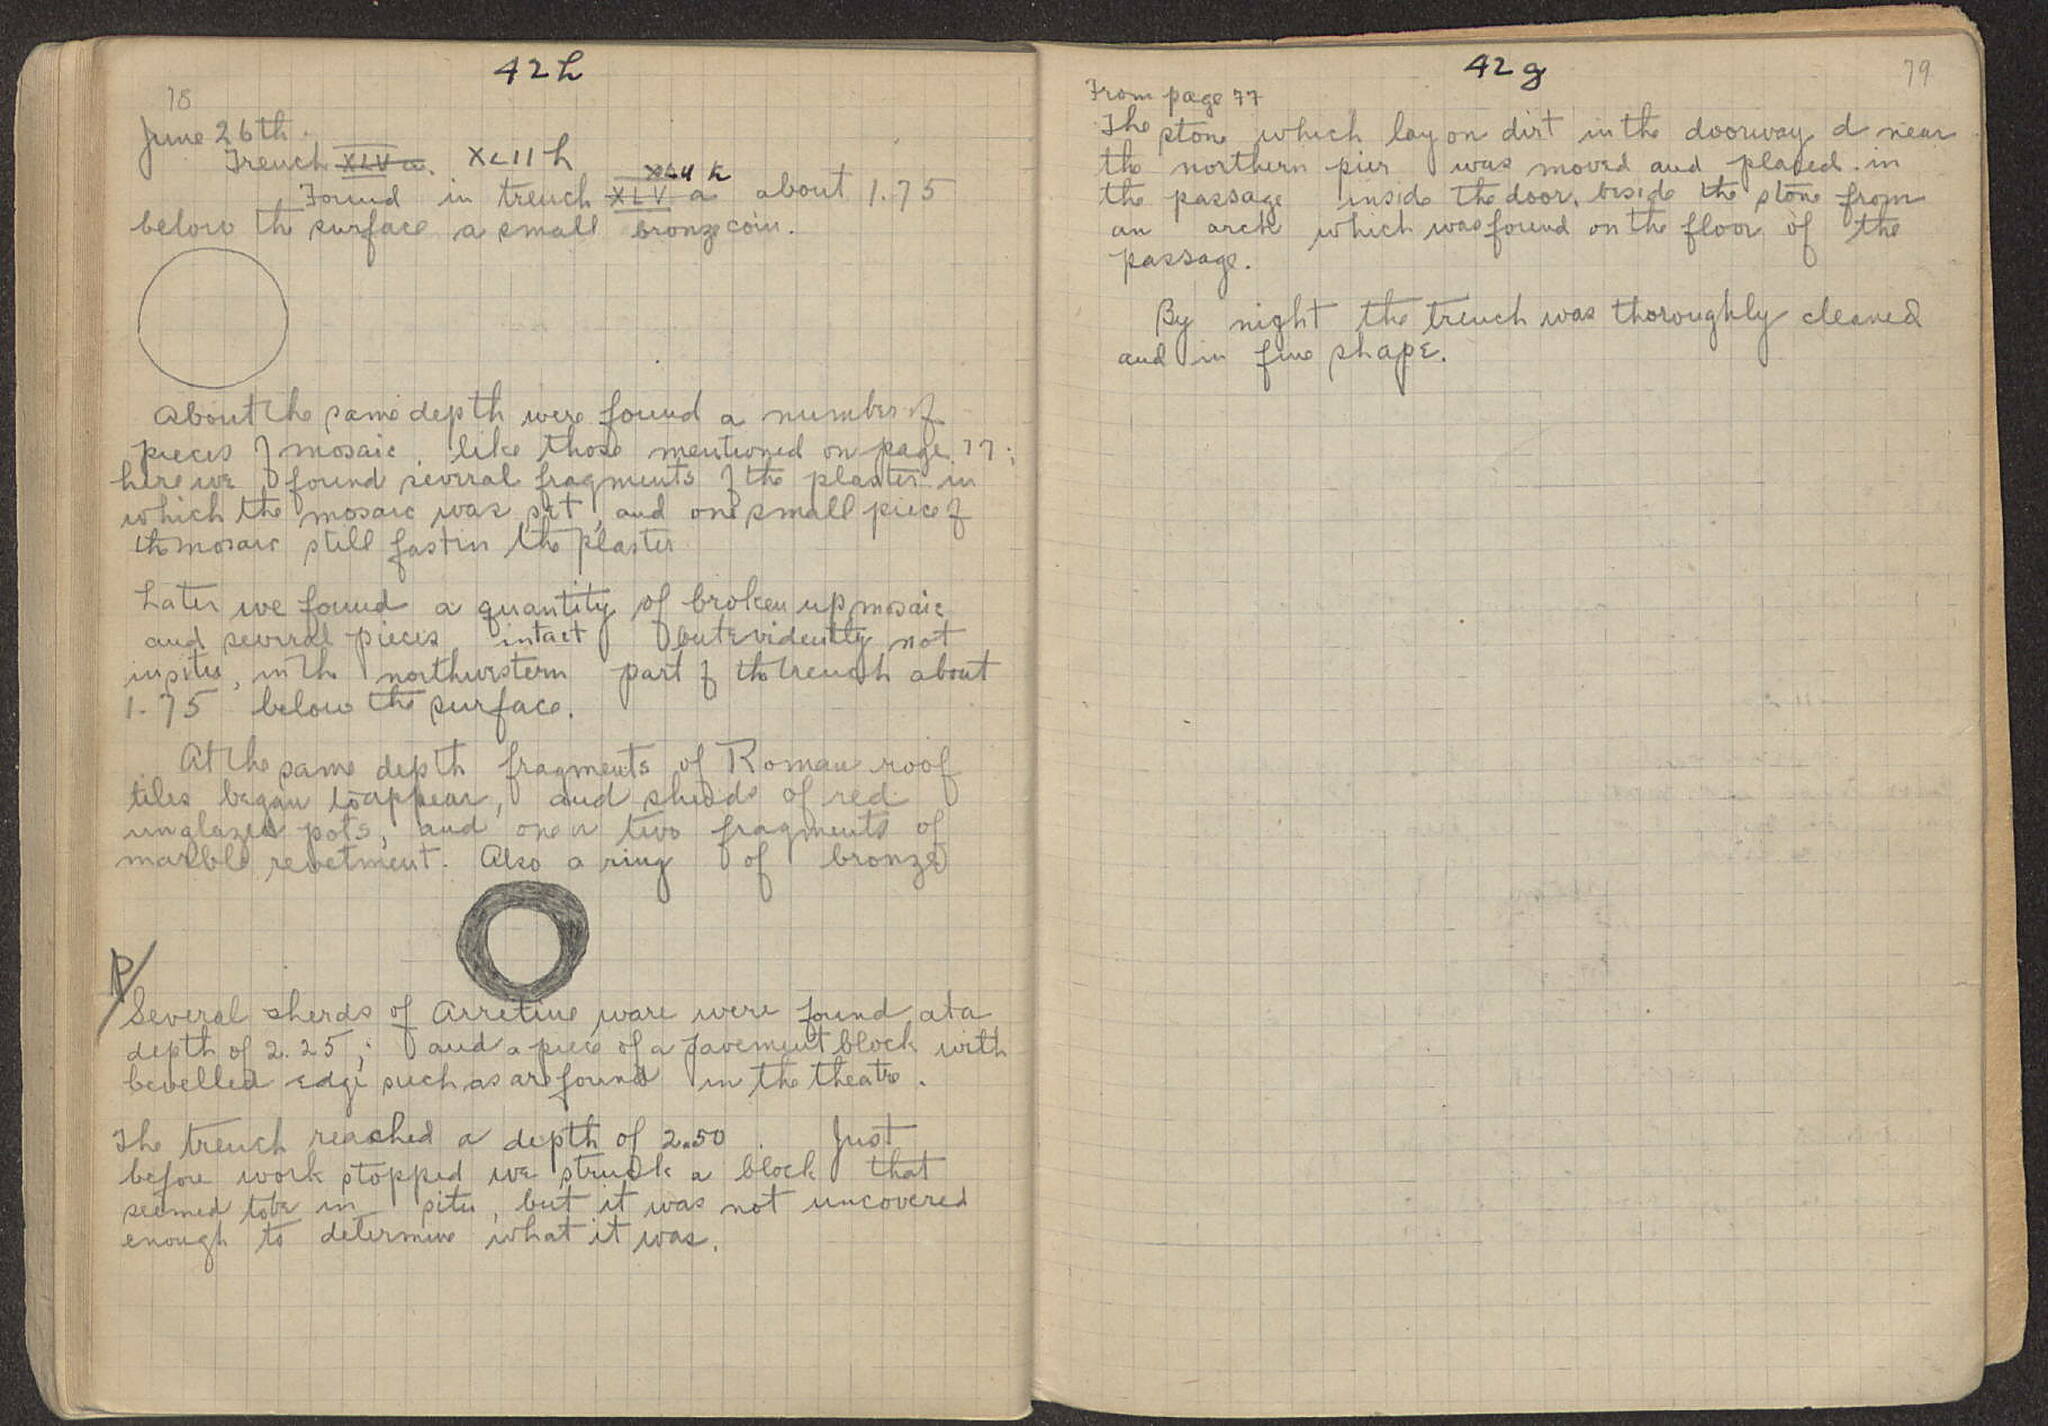 42 h
78
June 26th.
Trench XLV a. XLII h
XLII h
Found in trench XLV a about 1.75
below the surface a small bronze coin.
About the same depth were found a number of
pieces of mosaic, like those mentioned on page 77;
here we found several fragments of the plaster in
which the mosaic was set, and one small piece of
the mosaic still fast in the plaster
Later we found a quantity of broken up mosaic
and several pieces intact but evidently not
in situ, in the northwestern part of the trench about
1.75 below the surface.
At the same depth fragments of Roman roof
tiles began to appear, and sherds of red
unglazed pots, and one or two fragments of
marble revetment. Also a ring of bronze
P/
Several sherds of Arretine ware were found at a
depth of 2.25; and a piece of a pavement block with
bevelled edge such as are found in the theatre.
The trench reached a depth of 2.50. Just
before work stopped we struck a block that
seemed to be in situ, but it was not uncovered
enough to determine what it was.
42 g
79
From page 77
The stone which lay on dirt in the doorway d near
the northern pier was moved and placed in
the passage inside the door, beside the stone from
an arch which was found on the floor of the
passage.
By night the trench was thoroughly cleaned
and in fine shape.